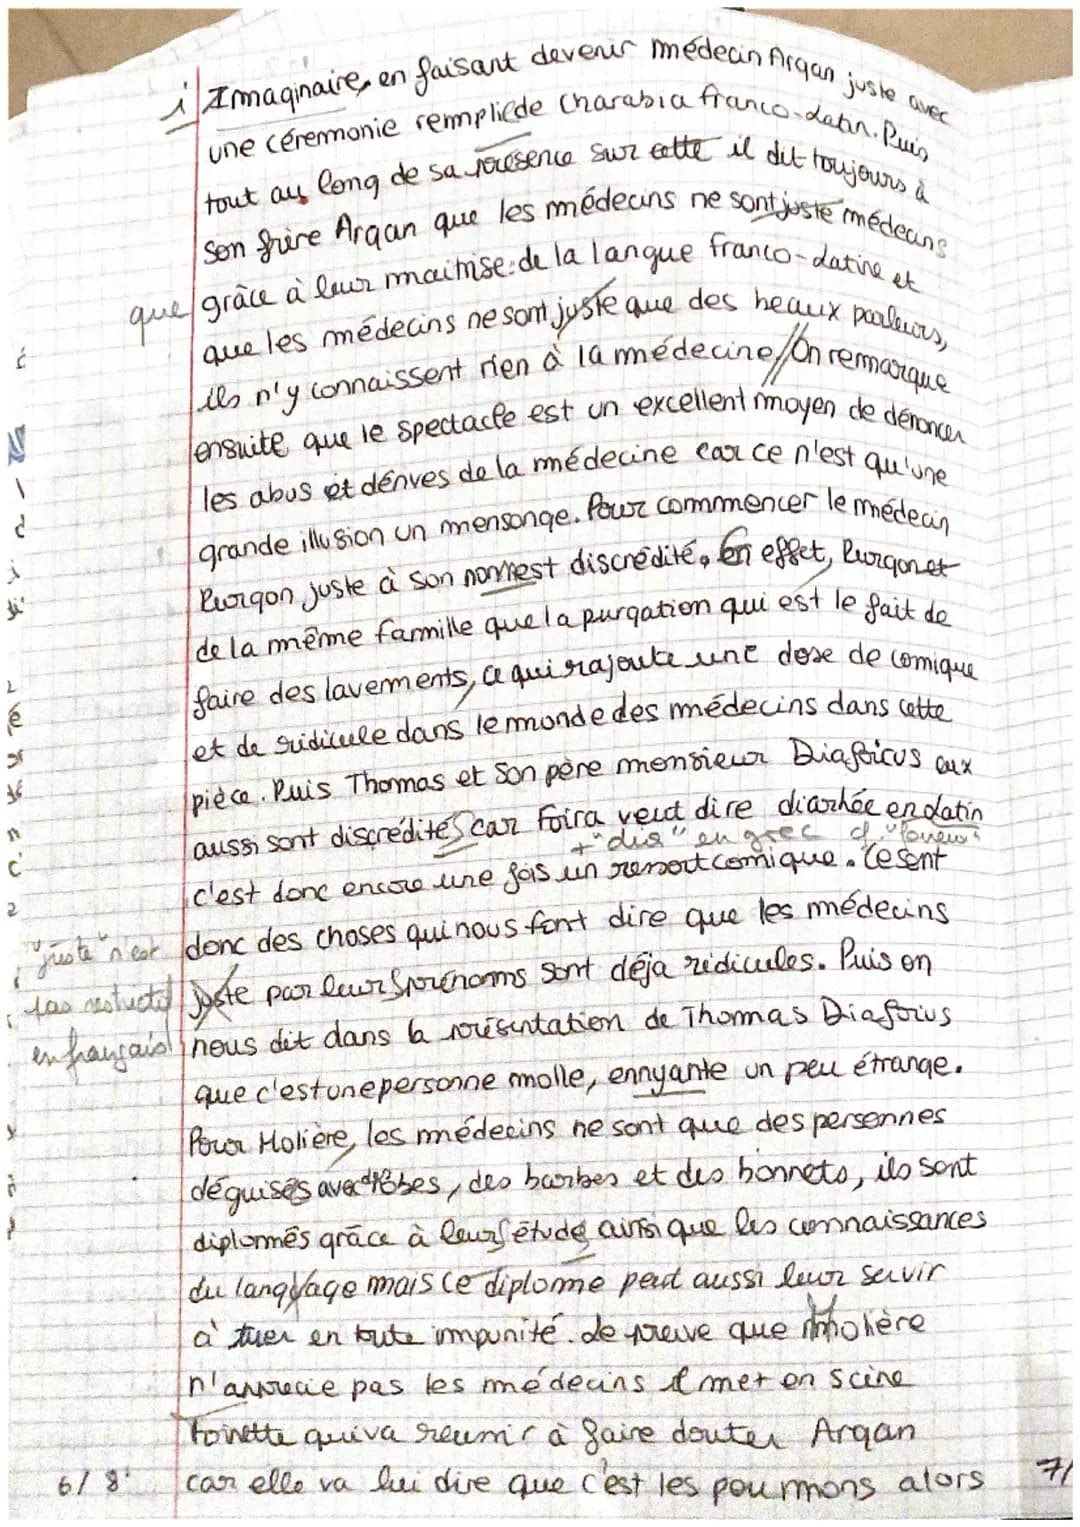 i Imaginaire, en faisant devenir médecin Argan juste avec
une céremonie rempliede Charabia franco-Latin. Puis
tout au long de sa présence sur cette il dit toujours à
son frère Argan que les médecins ne sont juste médecins
que grâce à leur maitrise de la langue franco-Latine et
que les médecins ne sont juste que des beaux parleurs,
ils n'y connaissent rien à la médecine // On remarque
ensuite que le spectacle est un excellent moyen de dénoncer
les abus et dérives de la médecine car ce n'est qu'une
grande illusion un mensonge. Pour commencer le médecin
Purgon juste à son nom est discrédité. En effet, Purgon et
de la même famille que la purgation qui est le fait de
faire des lavements, ce qui rajoute une dose de comique
et de ridicule dans le monde des médecins dans cette
pièce. Puis Thomas et Son père monsieur Diafoirus eux
aussi sont discrédités car Foira veut dire diarhée en Latin
+ "dia" en grec
c'est donc encore une fois un ressort comique. Ce sont
donc des choses qui nous font dire que les médecins
"juste" n'est pas restrictif en français
juste par leurs prénoms sont déja ridicules. Puis on
nous dit dans la présentation de Thomas Diafoirus
que c'est une personne molle, ennyante un peu étrange.
Pour Molière, les médecins ne sont que des personnes
déguisés avec des robes, des barbes et des bonnets, ils sont
diplomés grâce à leurs étude ainsi que les connaissances
du langage mais ce diplome peut aussi leur servir
à tuer en toute impunité. de preuve que Molière
n'apprecie pas les médecins il met en scène
Toinette qui va réussir à faire douter Argan
6/8 car elle va lui dire que c'est les poumons alors 7/